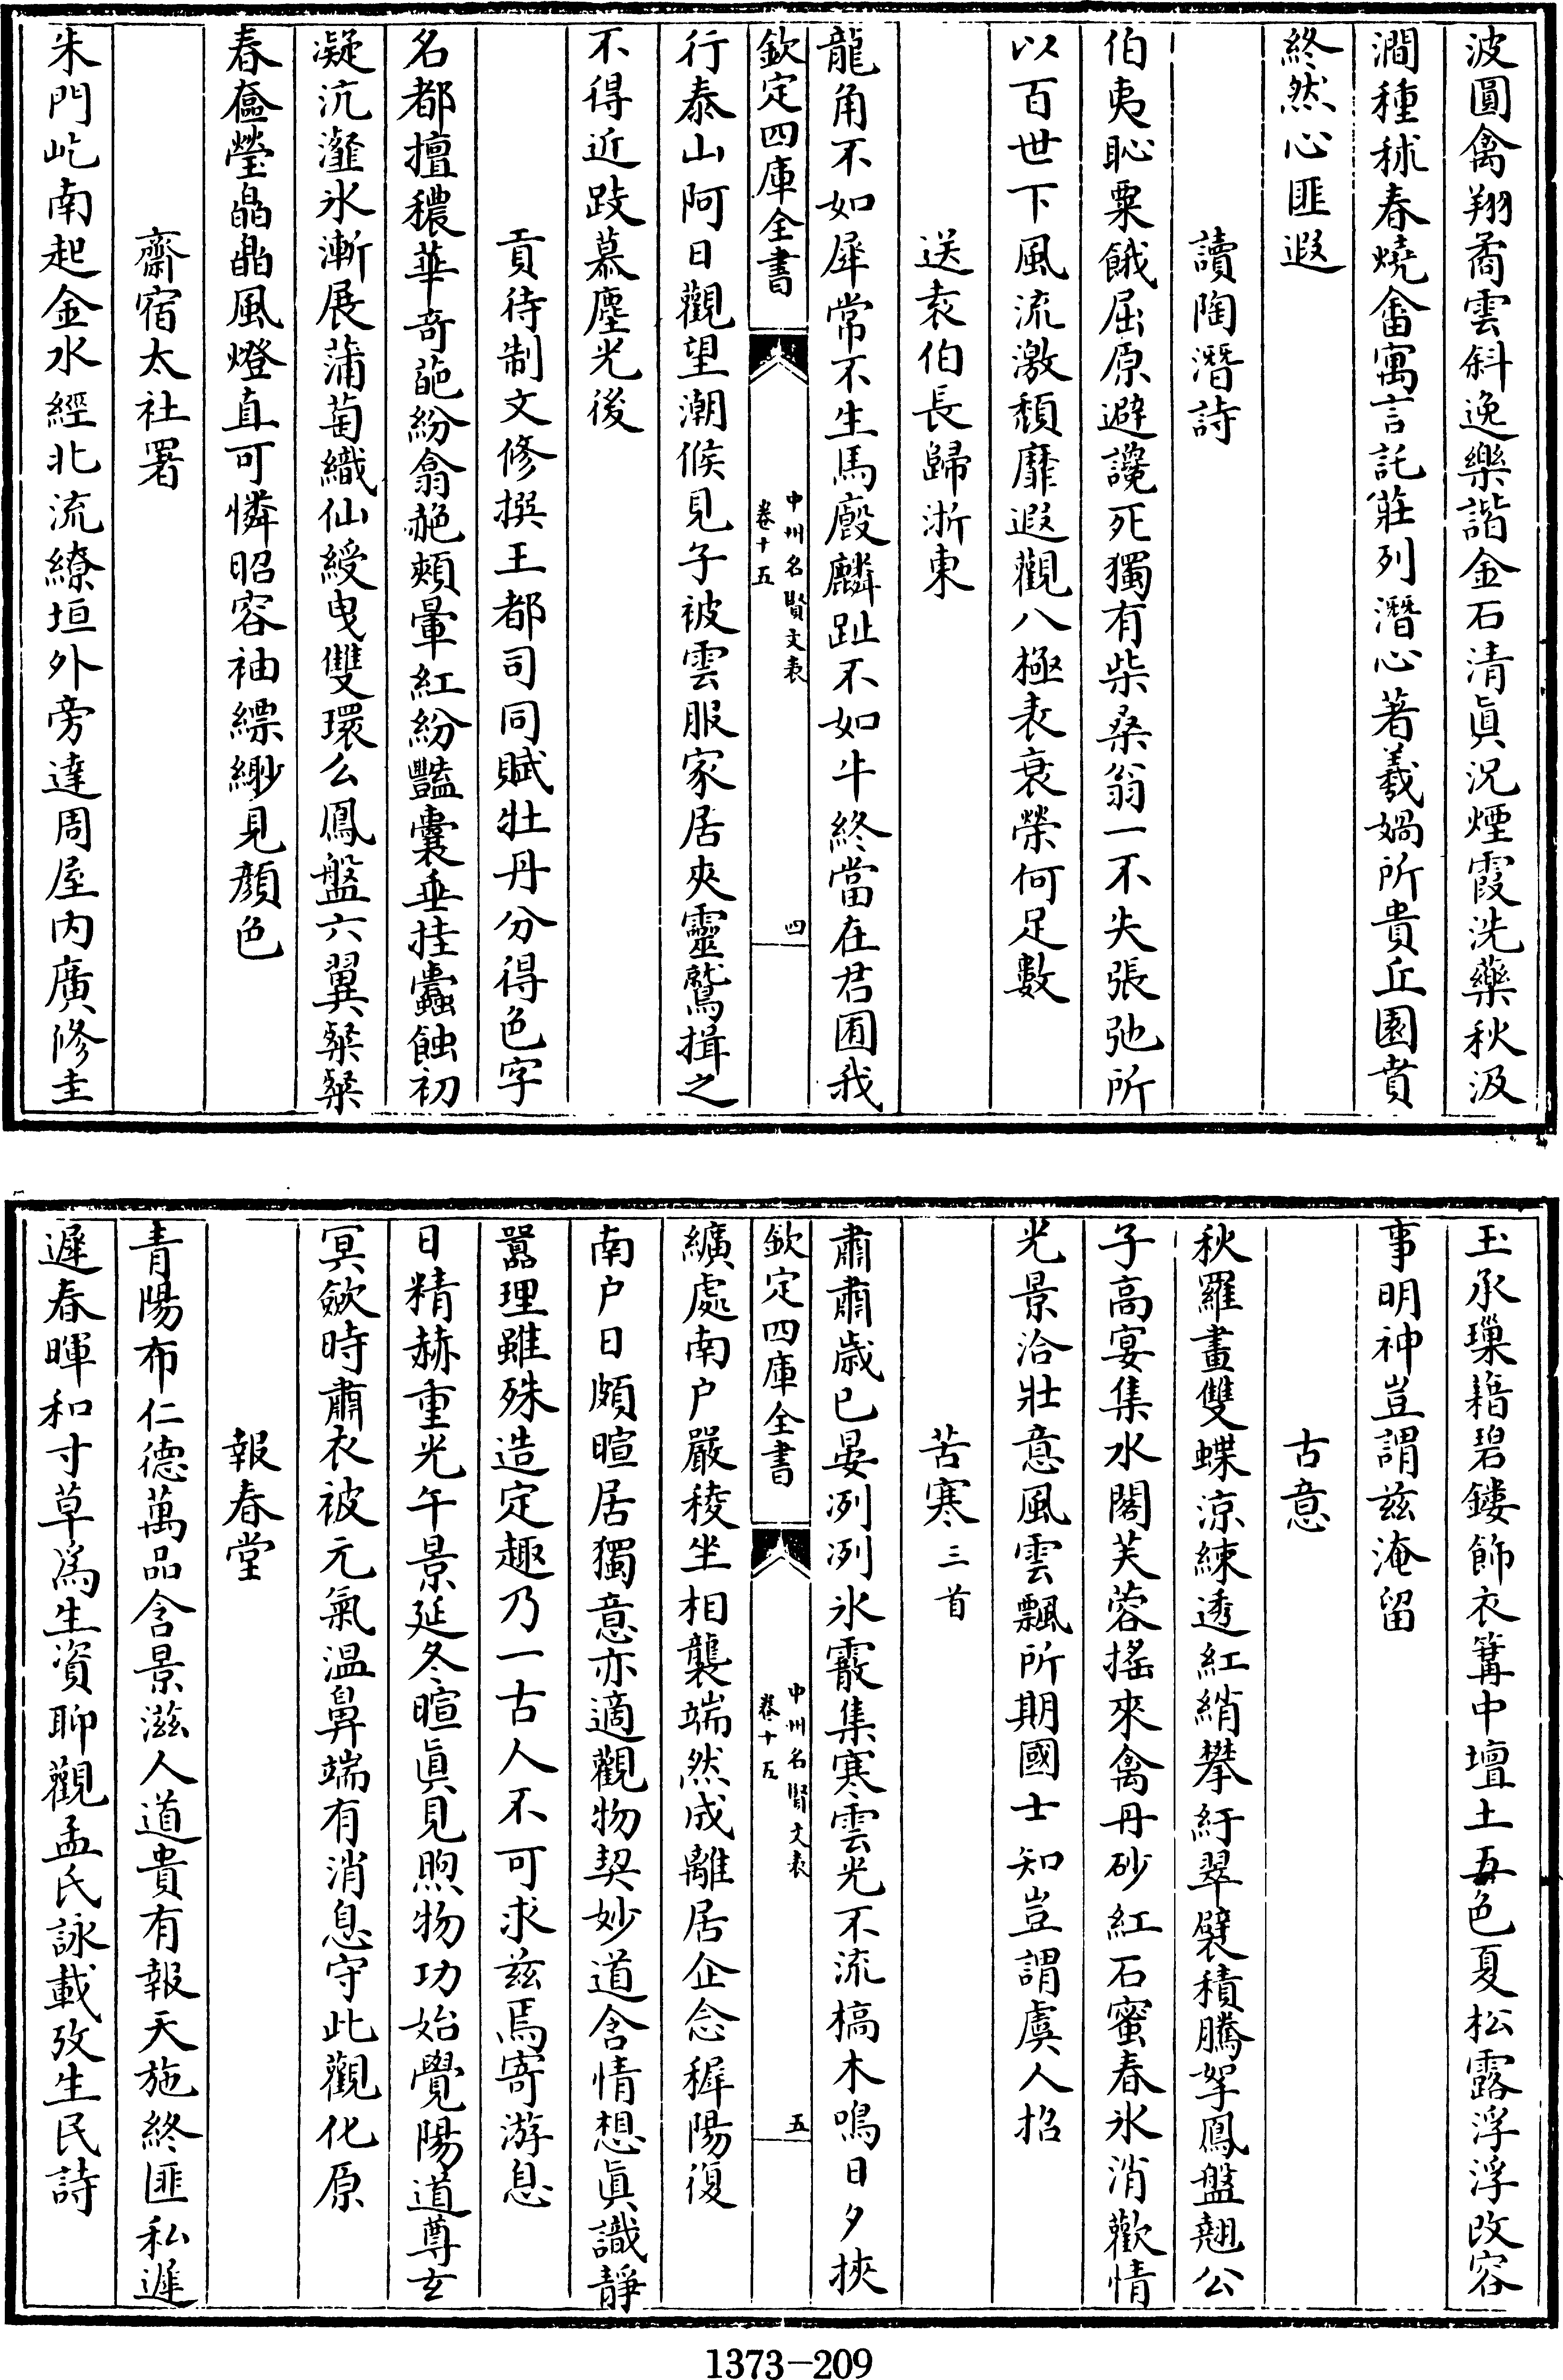 波圓禽翔矞雲斜逸樂諧金石清眞況煙霞洗藥秋汲
澗種秫春燒畬寓言託莊列潛心著羲媧所貴丘園賁
終然心匪遐
讀陶潛詩
伯夷恥粟餓屈原避讒死獨有柴桑翁一不失張弛所
以百世下風流激頹靡遐觀八極表衰榮何足數
送袁伯長歸浙東
龍角不如犀常不生馬廄麟趾不如牛終當在君囿我
欽定四庫全書
中州名賢文表
卷十五
四
行泰山阿日觀望潮候見子被雲服家居夾靈鷲揖之
不得近跂慕塵光後
貢待制文修撰王都司同賦牡丹分得色字
名都擅穠華奇葩紛翕赩頰暈紅紛豔囊垂挂蠹蝕初
凝沆瀣氷漸展蒲萄織仙綬曳雙環么鳳盤六翼粲粲
春奩瑩皛皛風燈直可憐昭容袖縹緲見顏色
齋宿太社署
朱門屹南起金水經北流繚垣外旁達周屋内廣修圭
玉承璅藉碧鏤飾衣篝中壇土五色夏松露浮浮改容
事明神豈謂兹淹留
古意
秋羅畫雙蝶凉練透紅綃攀紆翠襞積騰拏鳳盤翹公
子高宴集水閣芙蓉搖來禽丹砂紅石蜜春氷消歡情
光景洽壯意風雲飄所期國士知豈謂虞人招
苦寒三首
肅肅歲已晏冽冽氷霰集寒雲光不流槁木鳴日夕挾
欽定四庫全書
中州名賢文表
卷十五
五
纊處南户嚴稜坐相襲端然成離居企念穉陽復
南户日頗暄居獨意亦適觀物契妙道含情想眞識靜
嚣理雖殊造定趣乃一古人不可求兹焉寄游息
日精赫重光午景延冬暄眞見煦物功始覺陽道尊玄
冥斂時肅衣被元氣温鼻端有消息守此觀化原
報春堂
青陽布仁德萬品含景滋人道貴有報天施終匪私遲
遲春暉和寸草爲生資聊觀孟氏詠載攷生民詩
1373-209